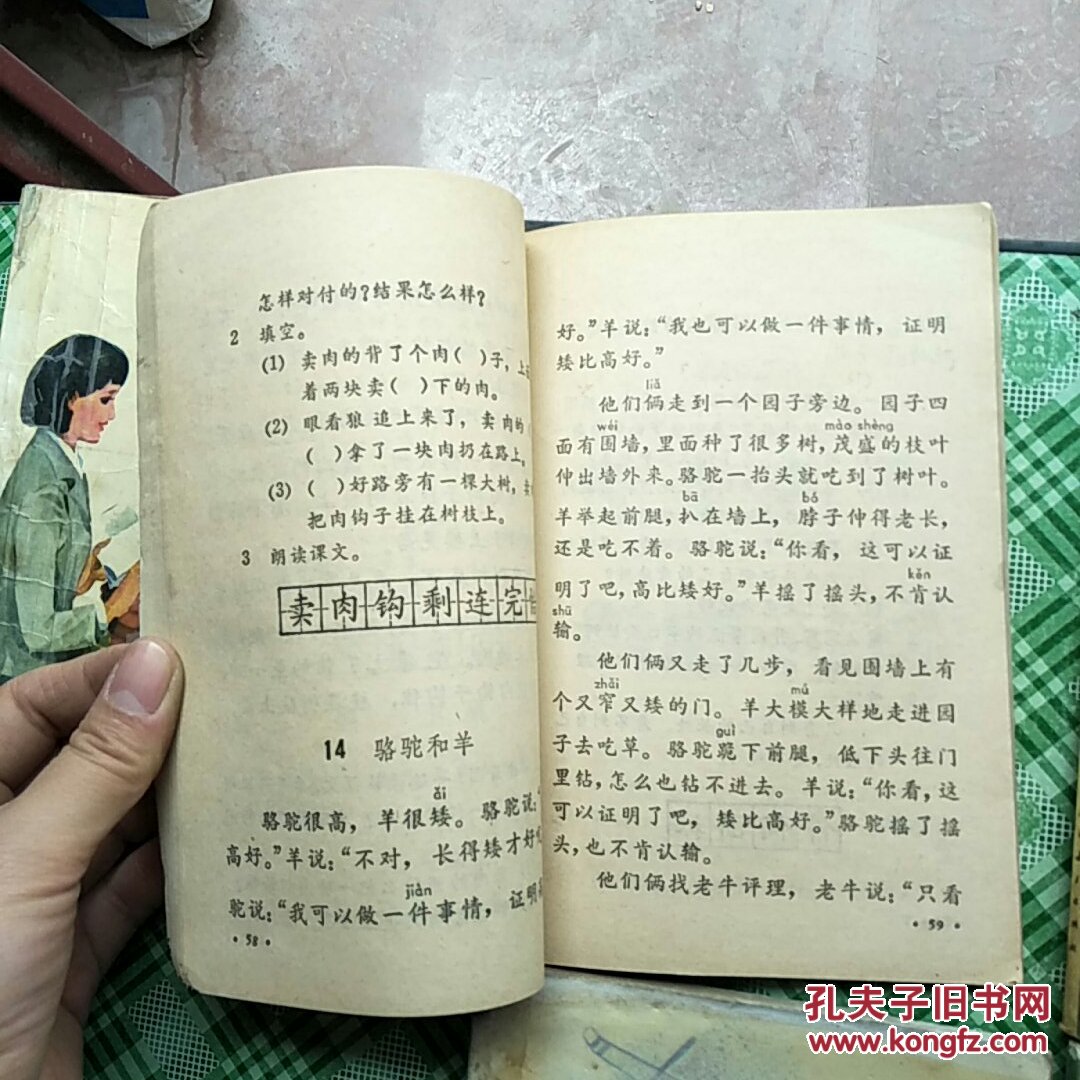 怎样对付的?结果怎么样?
2 填空。
(1) 卖肉的背了个肉( )子,上
着两块卖( )下的肉。
(2) 眼看狼追上来了,卖肉的
( )拿了一块肉扔在路上。
(3) ( )好路旁有一棵大树,
把肉钩子挂在树枝上。
3 朗读课文。
卖肉钩剩连完
14 骆驼和羊
ǎi
骆驼很高,羊很矮。骆驼说:
高好。”羊说:“不对,长得矮才好
jiàn
驼说:“我可以做一件事情,证明
·58·
好。”羊说:“我也可以做一件事情,证明
矮比高好。”
liǎ
他们俩走到一个园子旁边。园子四
wéi mào shèng
面有围墙,里面种了很多树,茂盛的枝叶
伸出墙外来。骆驼一抬头就吃到了树叶。
bā bó
羊举起前腿,扒在墙上,脖子伸得老长,
还是吃不着。骆驼说:“你看,这可以证
kěn
明了吧,高比矮好。”羊摇了摇头,不肯认
shū
输。
他们俩又走了几步,看见围墙上有
zhǎi mú
个又窄又矮的门。羊大模大样地走进园
guì
子去吃草。骆驼跪下前腿,低下头往门
里钻,怎么也钻不进去。羊说:“你看,这
可以证明了吧,矮比高好。”骆驼摇了摇
头,也不肯认输。
他们俩找老牛评理,老牛说:“只看
·59·
孔夫子旧书网
www.kongfz.com